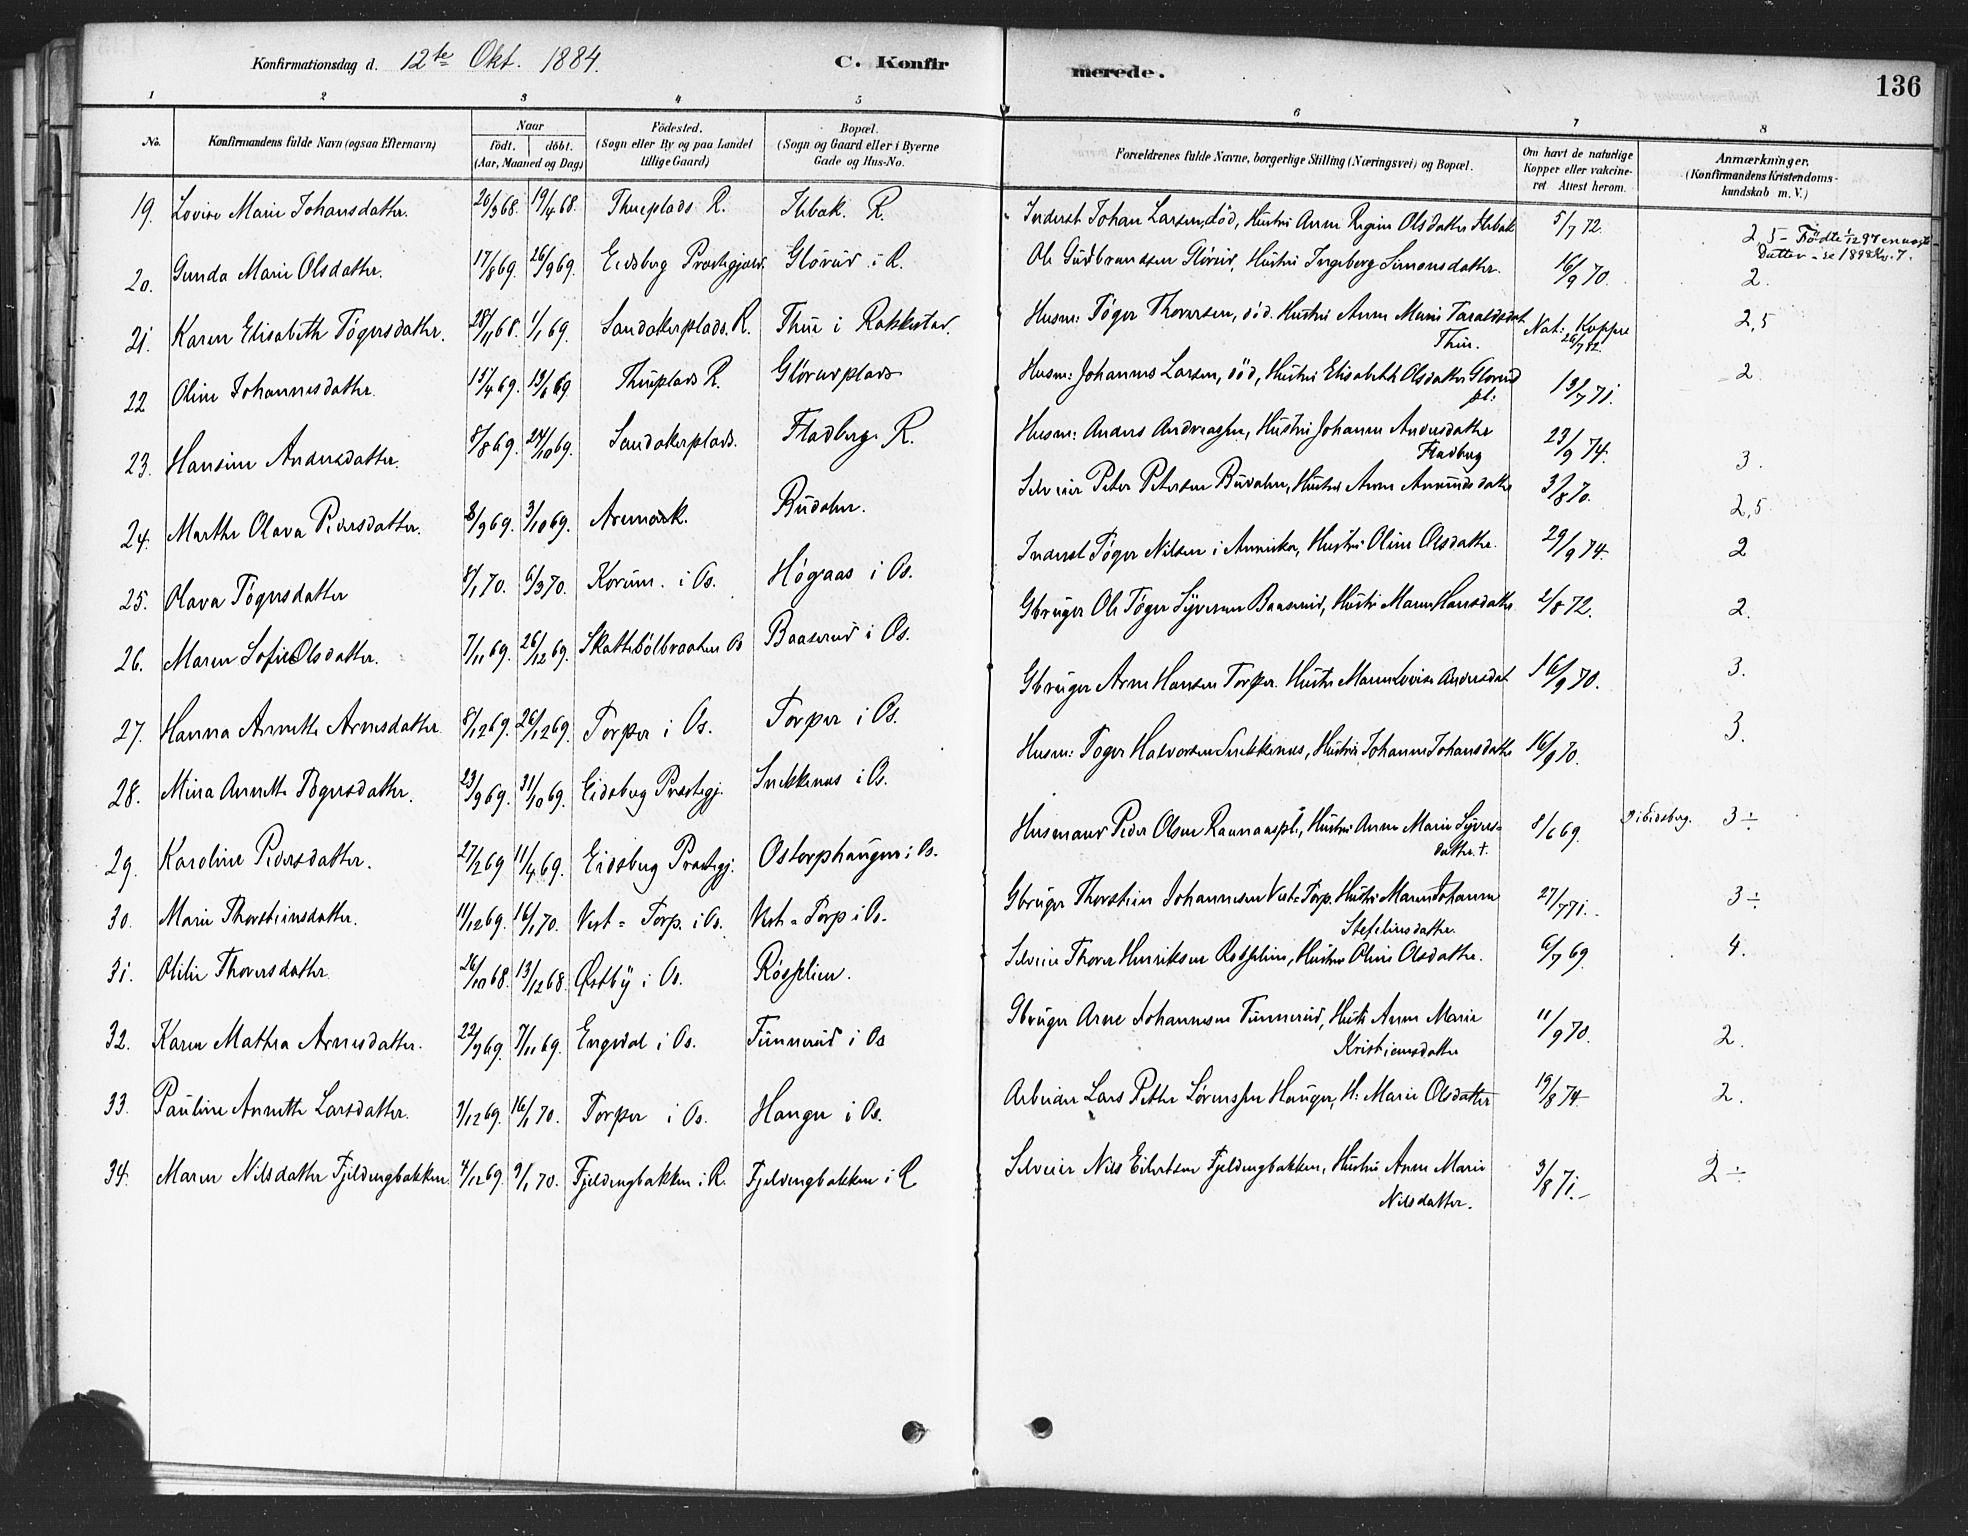 Konfirmationsdag d. 12te Okt. 1884. C. Konfirmerede. 136
1 2 3 4 5 6 7 8
No. Konfirmandens fulde Navn (ogsaa Efternavn) Naar født. døbt. (Aar, Maaned og Dag) Fødested. (Sogn eller By og paa Landet tillige Gaard) Bopæl. (Sogn og Gaard eller i Byerne Gade og Hus-No. Forældrenes fulde Navne, borgerlige Stilling (Næringsvei) og Bopæl. Om havt de naturlige Kopper eller vakcineret Attest herom. Anmærkninger. (Konfirmandens Kristendomskundskab m. V.)
19. Lovise Marie Johansdatter. 20/3 68. 19/4 68. Thueplads R. R. Inderst Johan Larsen, død, Hustru Anne Regine Olsdatter 5/7 72. 2,5 - Fødte 1/12 97 en datter - se 1898
20. Gunda Marie Olsdatter. 17/8 69. 26/9 69. Eidsberg Præstegjæld. Glørud i R. Ole Gudbransen Glørud, Hustru Ingeborg Simensdatter. 16/9 70. 2.
21. Karen Elisabeth Tøgersdatter. 28/11 68. 1/1 69. Sandakerplads. R. Thue i Rakkestad. Husm: Tøger Thoresen, død. Hustru Anne Marie Taraldsdat. Thue. Nat: Koppe 26/7 82. 2,5
22 Oline Johannesdatter. 15/4 69. 13/6 69 Thueplads R. Glørudplads Husm: Johannes Larsen, død, Hustru Elisabeth Olsdatter Glørud pl: 13/7 71. 2.
23. Hansine Andersdatter. 8/8 69. 24/10 69. Sandakerplads. Fladberg. R. Husm: Anders Andreassen, Hustru Johanne Andersdatter Fladberg 23/9 74. 3.
24. Marthe Olava Pedersdatter. 8/9 69. 3/10 69. Aremark. Budalen. Selveier Peter Petersen Budalen, Hustru Anne Amundsdatter 3/8 70. 2,5.
25. Olava Tøgersdatter 8/1 70. 6/3 70. Korum. i Os. Høgaas i Os. Inderst Tøger Nilsen i Amerika, Hustru Oline Olsdatter. 29/9 74. 2
26. Maren Sofie Olsdatter. 7/11 69. 26/12 69. Skattebølbraaten Os Baaserud i Os. Gbruger Ole Tøger Syversen Baaserud, Hustru Maren Hansdatter 2/8 72. 2.
27. Hanna Annette Arnesdatter 8/12 69. 26/12 69. Torper i Os. Torper i Os. Gbruger Arne Hansen Torper. Hustru Maren Lovise Andersdat. 16/9 70. 3.
28. Mina Annette Tøgersdatter. 23/9 69. 31/10 69. Eidsberg Præstegj. Snekkenes i Os. Husm: Tøger Halvorsen Snekkenes, Hustru Johanne Johansdatter 16/9 70. 3.
29. Karoline Pedersdatter. 27/2 69 11/4 69. Eidsberg Præstegj. Ostorphaugen i Os. Husmand Peder Olsen Raanaaspl., Hustru Anne Marie Syversdatter. †. 8/6 69. i Eidsberg. 3 ÷
30. Marie Thorsteinsdatter. 11/12 69. 16/1 70. Vest-Torp. i Os. Vest-Torp i Os. Gbruger Thorstein Johannesen Vest-Torp. Hustru Maren Johanne Stefensdatter. 27/7 71. 3 ÷
31. Otilie Thoversdatter. 26/10 68. 13/12 68. Østby i Os. Røsslien. Selveier Thover Henriksen Røsslien, Hustru Oline Olsdatter. 6/7 69. 4.
32. Karen Mathea Arnesdatter. 22/9 69. 7/11 69. Engedal i Os. Tunnerud i Os Gbruger Arne Johannesen Tunnerud, Hust Anne Marie Kristiansdatter 11/9 70. 2.
33. Pauline Annette Larsdatter. 7/12 69. 16/1 70. Torper i Os. Hauger i Os. Arbeider Lars Petter Sørenssen Hauger, H: Marie Olsdatter 19/8 74. 2.
34. Maren Nilsdatter Fjeldengbakken. 4/12 69. 9/1 70. Fjeldengbakken i R. Fjeldengbakken i R Selveier Nils Eilertsen Fjeldengbakken, Hustru Anne Marie Nilsdatter. 3/8 71. 2 ÷